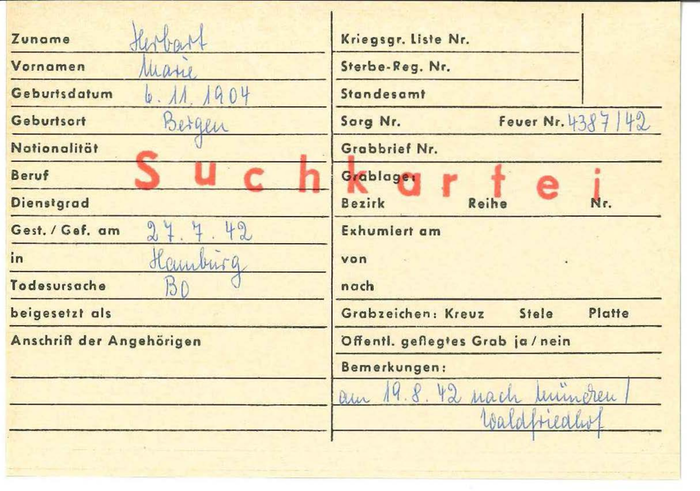 Zuname Herbart
Vornamen Marie
Geburtsdatum 6.11.1904
Geburtsort Bergen
Nationalität
Beruf
Dienstgrad
Gest./Gef. am 27.7.42
in Hamburg
Todesursache BO
beigesetzt als
Anschrift der Angehörigen
Suchkartei
Kriegsgr. Liste Nr.
Sterbe-Reg. Nr.
Standesamt
Sarg Nr. Feuer Nr. 4387/42
Grabbrief Nr.
Grablage:
Bezirk Reihe Nr.
Exhumiert am
von
nach
Grabzeichen: Kreuz Stele Platte
Öffentl. geflegtes Grab ja/nein
Bemerkungen:
am 19.8.42 nach München/
Waldfriedhof